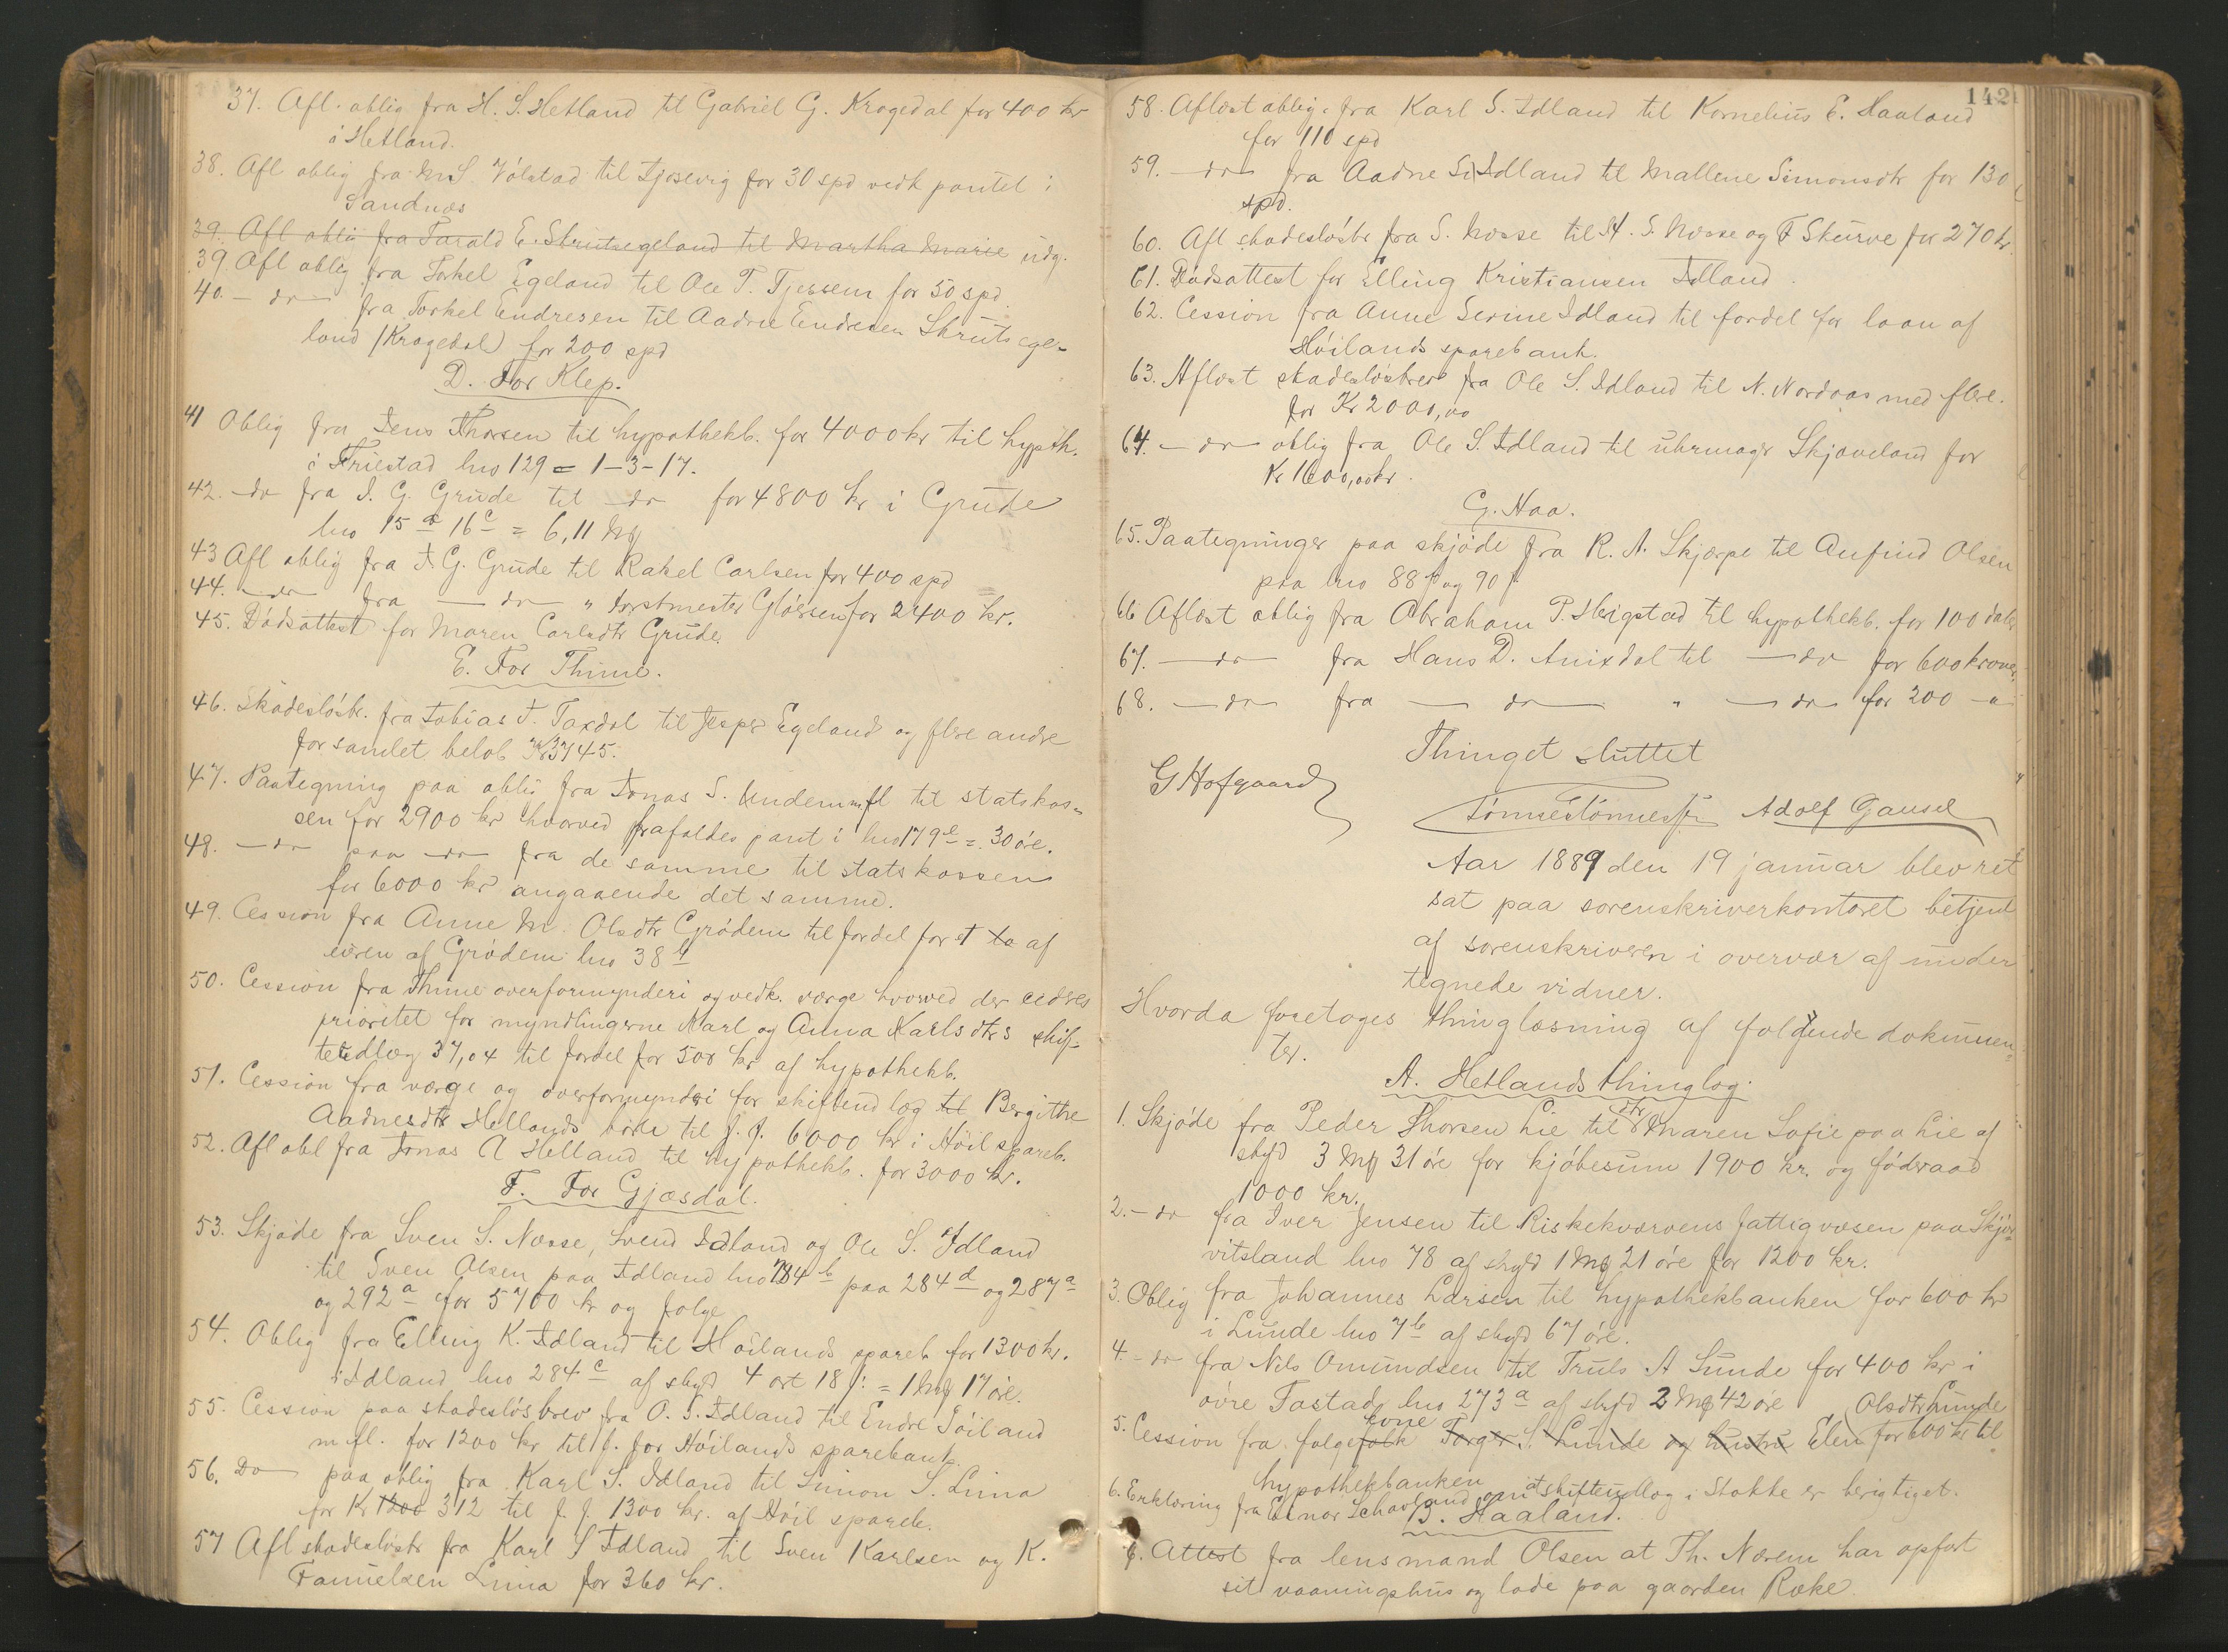 37. Afl. oblig fra H. S. Hetland til Gabriel G. Kragedal for 400 kr
i Hetland.
38. Afl oblig fra M S. Vølstad til Tjosevig for 30 spd vedk pantet i
Sandnæs
39. Afl oblig fra Tarald E. Skrutsegeland til Martha Marie udg.
39. Afl oblig fra Torkel Egeland til Ole T. Tjessem for 50 spd.
40. - do - fra Torkel Endresen til Aadne Endresen Skrutsege-
land (Kragedal) for 200 spd
D. For Klep.
41 Oblig fra Jens Thorsen til hypothekb. for 4000 kr til hypth.
i Friestad lno 129 = 1-3-17.
42. - do fra I. G. Grude til - do for 4800 kr i Grude
lno 15 a 16 c = 6,11 Mk
43 Afl oblig fra I. G. Grude til Rakel Carlsen for 400 spd
44. - do fra - do - " forstmester Gløersen for 2400 kr.
45. Dødsattest for Maren Carlsdtr Grude
E. For Thime.
46. Skadesløsbr. fra Tobias T. Taxdal til Jesper Egeland og flere andre
for samlet beløb Kr 3745.
47. Paategning paa oblig fra Jonas S. Undem m fl til statskas-
sen for 2900 kr hvorved frafaldes pant i lno 179 e = 30 øre.
48. - do paa do fra de samme til statskassen
for 6000 kr angaaende det samme.
49. Cession fra Anne M. Olsdtr Grødem til fordel for et la af
eieren af Grødem lno 38 b
50. Cession fra Thime overformynderi og vedk. værge hvorved der cederes
prioritet for myndlingerne Karl og Anna Karlsdtrs skif-
teudlæg 37,04 til fordel for 500 kr af hypothekb.
51. Cession fra værge og overformynderi for skifteudlæg til Bergitthe
Aadnesdtr Hellands børn til f. f. 6000 kr i Høil spareb.
52. Afl obl fra Jonas A Helland til hypothekb. for 3000 kr.
F. For Gjæsdal.
53. Skjøde fra Sven S. Næsse, Svend Idland og Ole S. Idland
til Sven Olsen paa Idland lno 284 b paa 284 d og 287 a
og 292 a for 5700 kr og følge
54. Oblig fra Elling K. Idland til Høilands spareb for 1300 kr.
i Idland lno 284 c af skyld 4 ort 18 f: = 1 Mk 17 øre.
55. Cession paa skadesløsbrev fra O. S. Idland til Endre Høiland
m fl. for 1200 kr til f. for Høilands sparebank.
56. Do paa oblig fra Karl S. Idland til Simon S. Lima
for Kr 1200 312 til f. f. 1300 kr. af Høil spareb.
57 Afl skadesløsbr fra Karl S Idland til Sven Karlsen og K.
Samuelsen Lima for 360 kr.
142
58. Aflæst oblig. fra Karl S. Idland til Kornelius E. Haaland
for 110 spd
59. - do fra Aadne S. Idland til Mallene Simonsdtr for 130
spd.
60. Afl skadesløsbr fra S. Næsse til A. S. Næsse og F Skurve for 270 kr.
61. Dødsattest for Elling Kristiansen Idland.
62. Cession fra Anne Serine Idland til fordel for laan af
Høilands sparebank.
63. Aflæst skadesløsbrev fra Ole S. Idland til N. Nordaas med flere.
for Kr 2000,00
64. - do oblig fra Ole S. Idland til uhrmager Skjæveland for
Kr 1600,00 kr.
G. Haa.
65. Paategninger paa skjøde fra R. A. Skjærpe til Anfind Olsen
paa lno 88 f og 90 f
66 Aflæst oblig fra Abraham P. Herigstad til hypothekb. for 100 daler
67. - do - fra Hans D. Anixdal til - do for 600 kroner
68. - do fra - do - " - do for 200 - "
Thinget sluttet
G Hofgaard
Tønnes Tønnessen Adolf Gausel
Aar 1889 den 19 januar blev ret
sat paa sorenskriverkontoret betjent
af sorenskriveren i overvær af under
tegnede vidner.
Hvorda foretoges thinglæsning af følgende dokumen-
ter.
A. Hetlands thinglag.
1. Skjøde fra Peder Thorsen Lie til dtr Maren Sofie paa Lie af
skyld 3 Mk 31 øre for kjøbesum 1900 kr. og føderaad
1000 kr.
2. - do fra Iver Jensen til Riskekvervens fattigvæsen paa Skjør-
vitsland lno 78 af skyld 1 Mk 21 øre for 1200 kr.
3. Oblig fra Johannes Larsen til hypothekbanken for 600 kr
i Lunde lno 7 b af skyld 67 øre.
4. - do fra Nils Omundsen til Truls A Sunde for 400 kr i
øvre Tastad lno 273 a af skyld 2 Mk 42 øre
5. Cession fra folgefolk kone Torger S. Lunde og hustru Elen Olsdtr Lunde for 600 kr til
hypothekbanken
6. Erklæring fra Elinor Schavland om at skifteudlæg i Stokke er berigtiget.
B. Haaland.
6. Attest fra lensmand Olsen at Th. Nærem har opført
sit vaaningshus og lade paa gaarden Ræke.